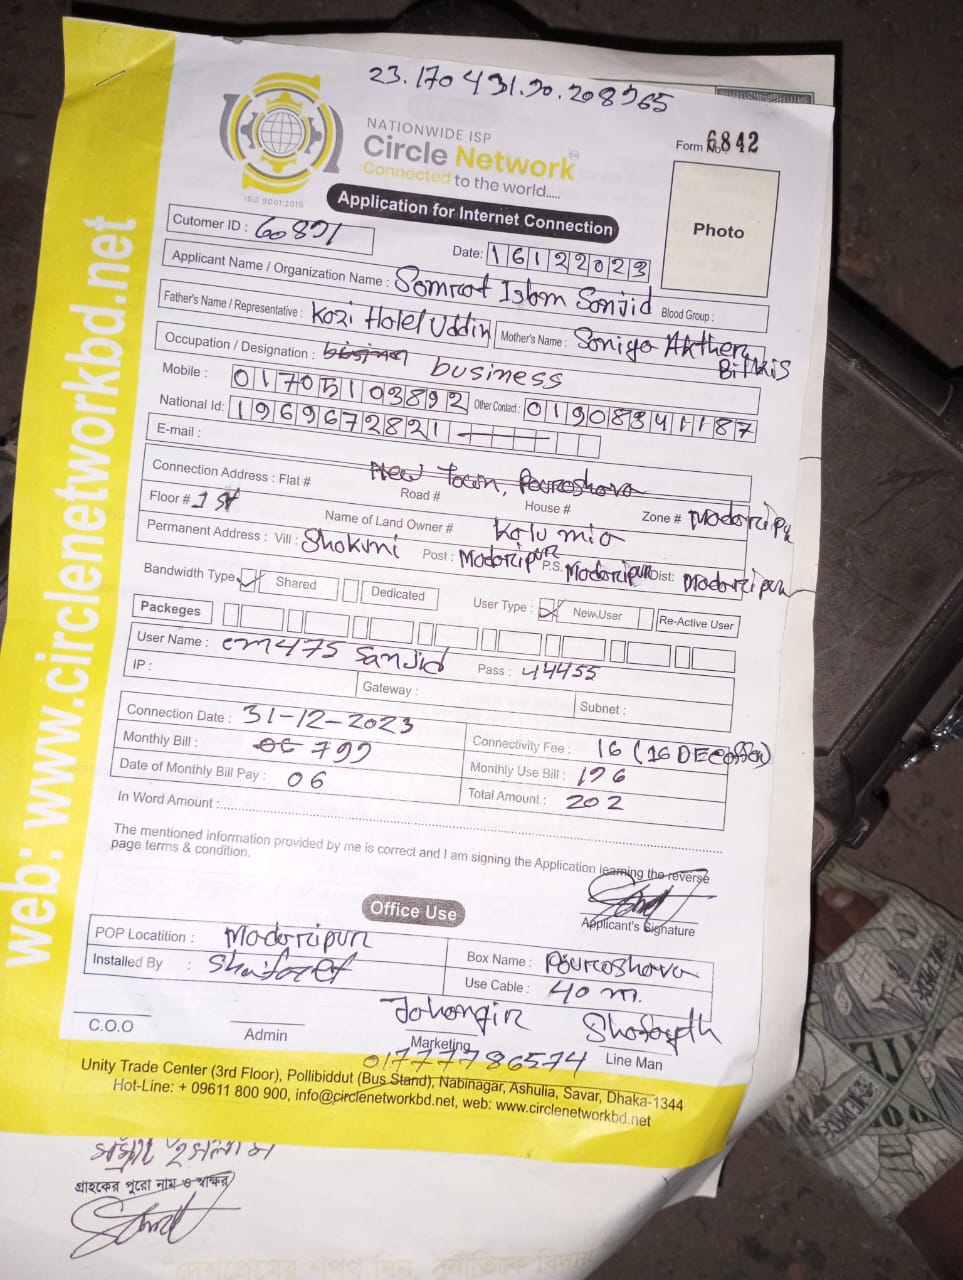 23.170431.90.208965
NATIONWIDE ISP
Circle Network
Connected to the world.....
ISO 9001:2015
Form No. 6842
Application for Internet Connection
Photo
Cutomer ID :
Date: 16122023
Applicant Name / Organization Name : Somrat Islam Sonjid Blood Group :
Father's Name / Representative : Kazi Holel Uddin Mother's Name : Soniya Akther
Occupation / Designation : business
Mobile : 01705103892 Other Contact : 01908341187
National Id: 1969672821
E-mail :
Connection Address : Flat # Road # House # Zone # Madaripur
New Town, Pouroshova
Floor # 1st Name of Land Owner # Kalu mia
Permanent Address : Vill : Shokuni Post : Madaripur P.S. Madaripur Dist: Madaripur
Bandwidth Type Shared Dedicated User Type : New User Re-Active User
Packeges
User Name : cm475 Sanjid Pass : 44455
IP : Gateway : Subnet :
Connection Date : 31-12-2023 Connectivity Fee : 16
Monthly Bill : 799 Monthly Use Bill :
Date of Monthly Bill Pay : 06 Total Amount : 202
In Word Amount :
The mentioned information provided by me is correct and I am signing the Application learning the reverse
page terms & condition.
Applicant's Signature
Office Use
POP Locatition : Madaripur Box Name : Pouroshava
Installed By : Use Cable : 40 m.
Jahangir
C.O.O Admin Marketing Line Man
01777786574
Unity Trade Center (3rd Floor), Pollibiddut (Bus Stand), Nabinagar, Ashulia, Savar, Dhaka-1344
Hot-Line: + 09611 800 900, info@circlenetworkbd.net, web: www.circlenetworkbd.net
web: www.circlenetworkbd.net
গ্রাহকের পুরো নাম ও স্বাক্ষর